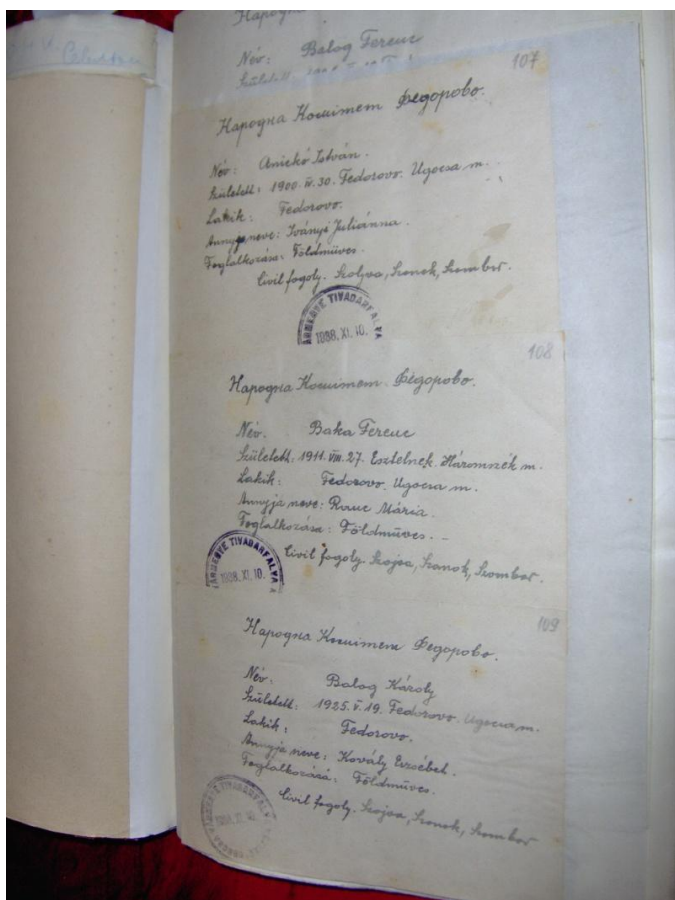 Név: Balog Ferenc
Született
107
Народна Комитет Федорово.
Név: Anickó István.
Született: 1900. IV. 30. Fedorovo. Ugocsa m.
Lakik: Fedorovo.
Annyja neve: Iványi Juliánna.
Foglalkozása: Földmüves.
Civil fogoly. Szoljva, Szanok, Szombor.
TIVADARFALVA
1938. XI. 10.
108
Народна Комитет Федорово.
Név: Baka Ferenc
Született: 1911. VIII. 27. Esztelnek. Háromszék m.
Lakik: Fedorovo. Ugocsa m.
Annyja neve: Rauc Mária.
Foglalkozása: Földmüves.-
Civil fogoly. Szojva, Szanok, Szombor.
TIVADARFALVA
1938. XI. 10.
109
Народна Комитет Федорово.
Név: Balog Károly
Született: 1925. V. 19. Fedorovo. Ugocsa m.
Lakik: Fedorovo.
Annyja neve: Kovály Erzsébet.
Foglalkozása: Földmüves.
Civil fogoly. Szojva, Szanok, Szombor
TIVADARFALVA